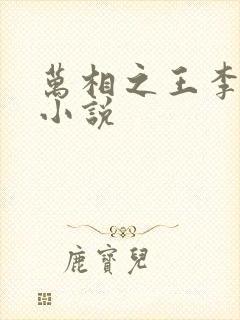 萬相之王李
小說
鹿寶兒